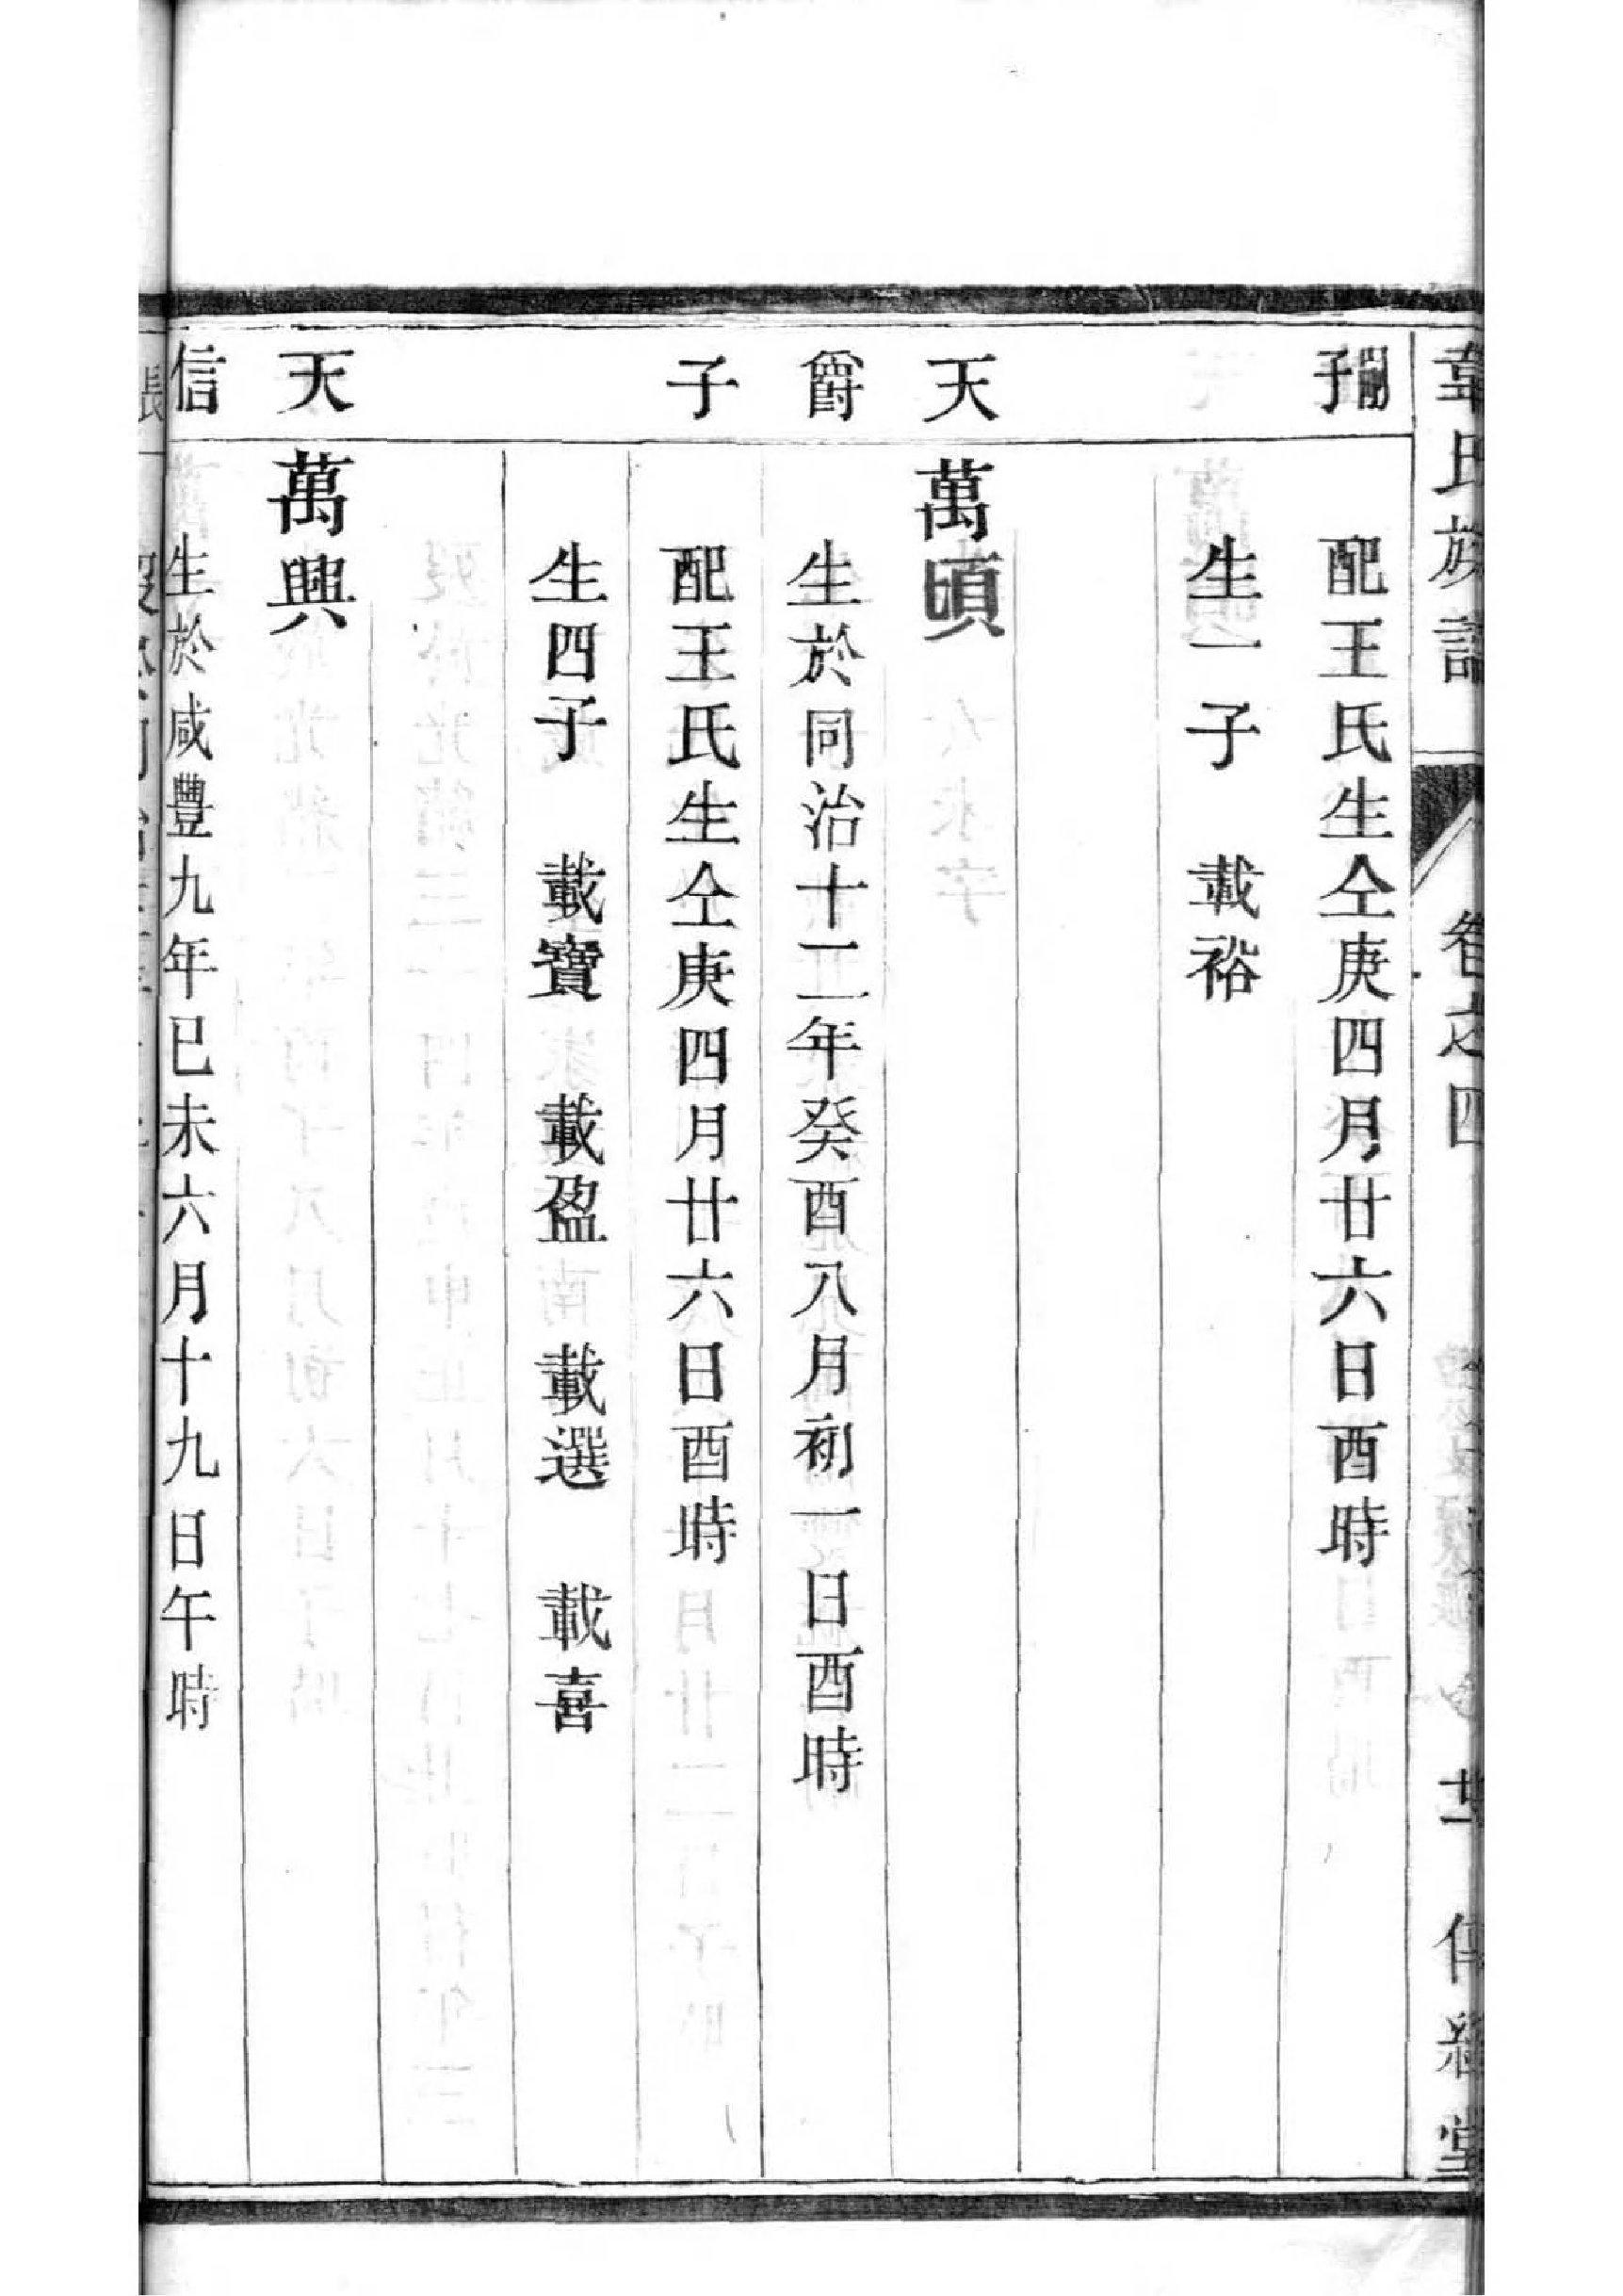 韋氏族譜 卷之四 廿一 傳經堂
子
配王氏生仝庚四月廿六日酉時
生一子 載裕
天 萬頃
爵 生於同治十二年癸酉八月初一日酉時
子 配王氏生仝庚四月廿六日酉時
生四子 載寶 載盈 載選 載喜
天 萬興
信 生於咸豐九年已未六月十九日午時